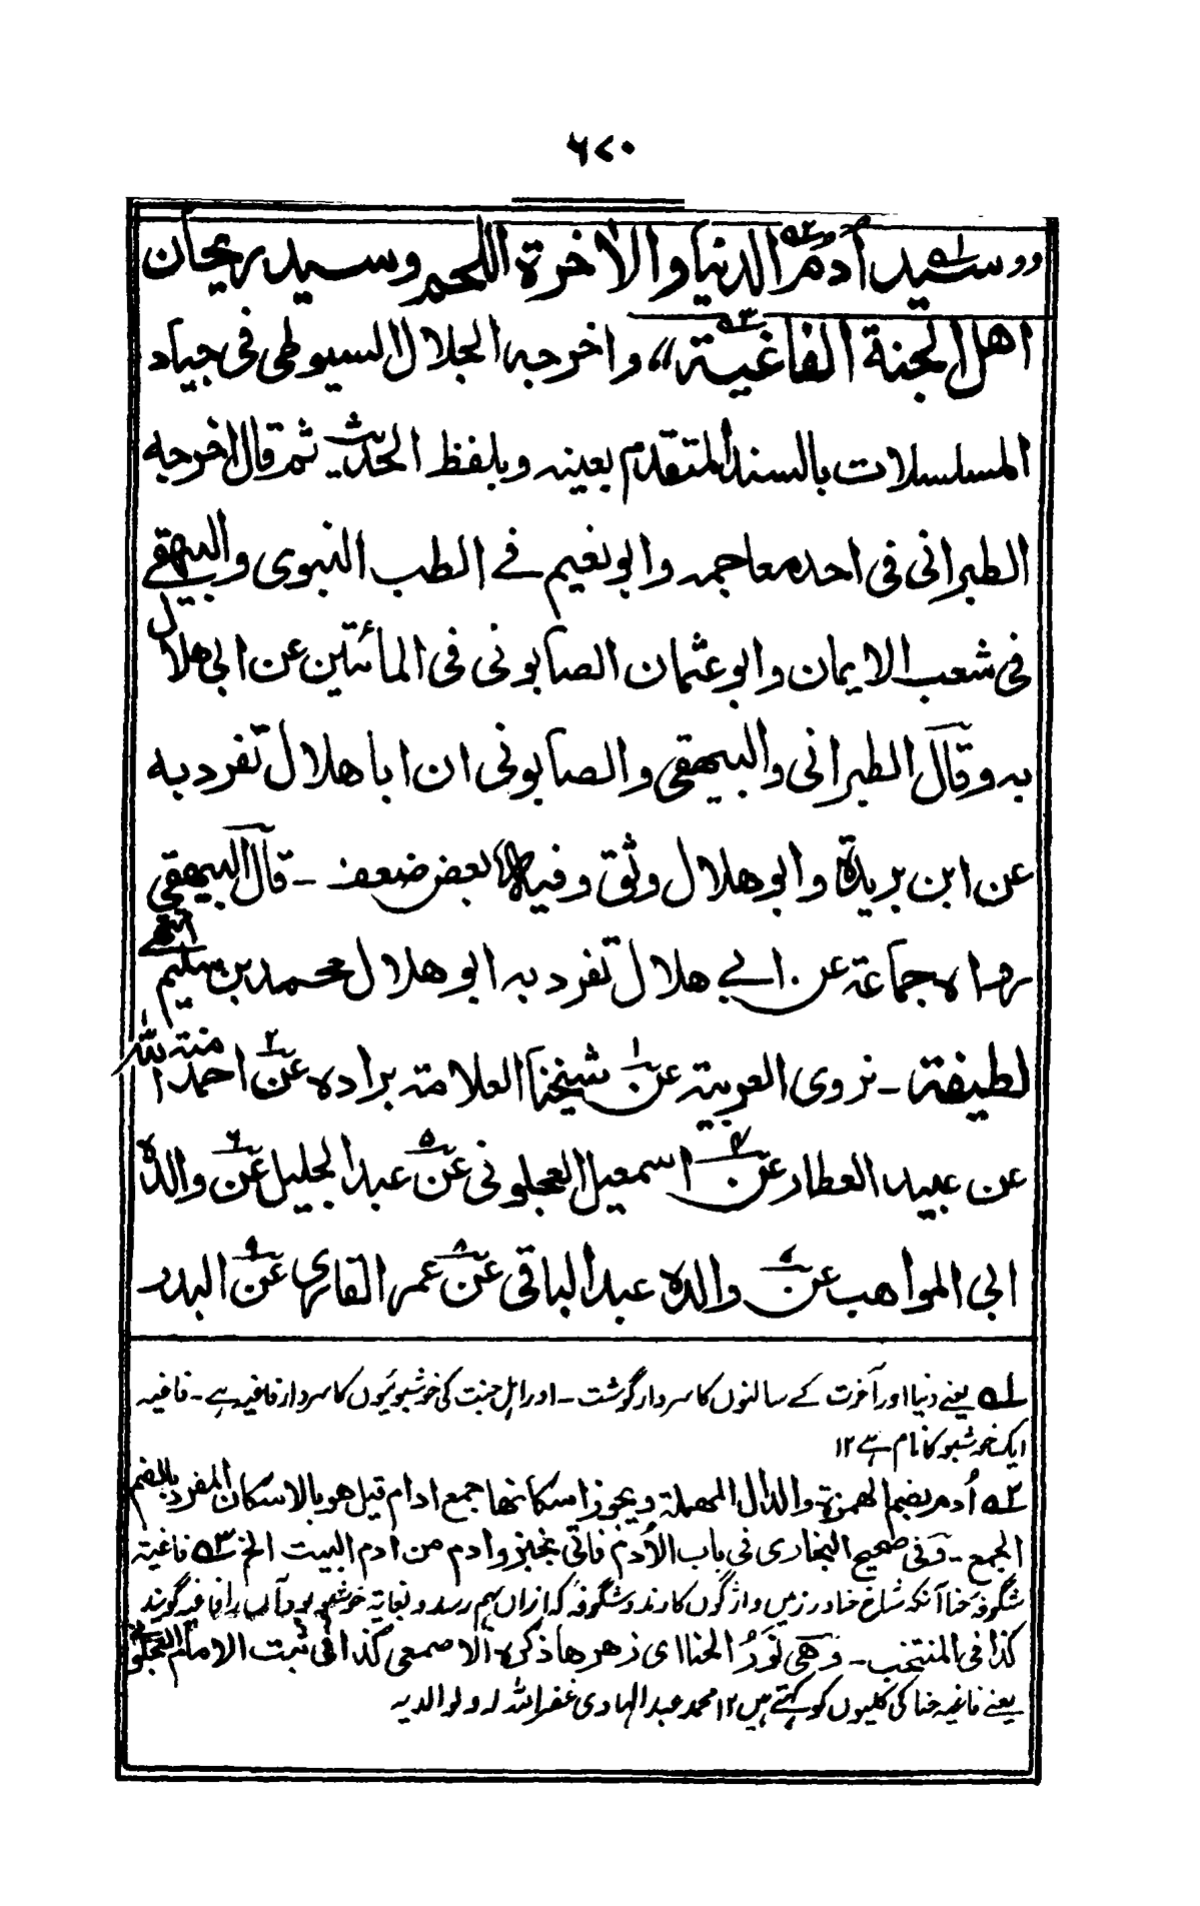 ٦٧٠
،، سید ادم الدنیا والاخرة اللحم وسید ریحان
اهل الجنة الفاغیة،، واخرجه الجلال السیوطی فی جیاد
المسلسلات بالسند المتقدم بعینه وبلفظ الحدیث ثم قال اخرجه
الطبرانی فی احد معاجمه وابو نعیم فے الطب النبوی والبیهقے
فی شعب الایمان وابو عثمان الصابونی فی المائتین عن ابی هلال
به وقال الطبرانی والبیهقی والصابونی ان ابا هلال تفرد به
عن ابن بریدة وابو هلال وثق وفیه بعض ضعف ـ قال البیهقی
رواه جماعة عن ابے هلال تفرد به ابو هلال محمد بن سلیم انتهے
لطیفة ـ نروی العربیة عن۱ شیخنا العلامة براده عن۲ احمد منة الله
عن عبید العطار عن۴ اسمعیل العجلونی عن۵ عبد الجلیل عن۶ والده
ابی المواهب عن۷ والده عبد الباقی عن۸ عمر القاری عن۹ البدر
۱ه یعنے دنیا اور آخرت کے سالنوں کا سردار گوشت ۔ اور اہل جنت کی خوشبوئیوں کا سردار فاغیہ ہے ۔ فاغیہ
ایک خوشبو کا نام ہے ۱۲
۲ه اُدم بضم الهمزة والدال المهملة ویجوز اسکانها جمع ادام قیل هو بالاسکان المفرد بالضم
الجمع ـ وفی صحیح البخاری فی باب الأدم فاتی بخبز وادم من ادم البیت الخ ۳ه فاغیة
شگوفه حنا آنکه شاخ حنا در زمین واژگون کارند وشگوفه که ازان بهم رسد و بغایة خوشبو بود آن را فاغیه گویند
کذا فی المنتخب ـ وهی نَورُ الحنا ای زهرها ذکره الاصمعی کذا فی ثبت الامام العجلونی
یعنے فاغیہ حنا کی کلیوں کو کہتے ہیں ۱۲ محمد عبد الہادی غفر الله له ولوالدیه